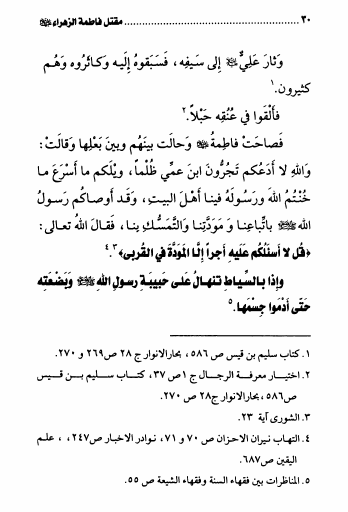 ٣٠ ........................................ مقتل فاطمة الزهراء ﷺ
وَثارَ عَلِيٌّ ﷺ إلى سَيفِه، فَسَبَقوهُ إلَيه وَكاثَروه وَهُم
كَثيرون.١
فأَلْقَوا في عُنُقِه حَبْلاً.٢
فَصاحَتْ فاطِمةُ ﷺ وَحالَت بينَهُم وبينَ بَعْلِها وَقالَتْ:
وَاللهِ لا أَدَعُكم تَجُرُّونَ ابنَ عمِّي ظُلْماً، ويْلَكم ما أَسْرَعَ ما
خُنْتُمُ اللهَ وَرسُولَهُ فينا أهْلَ البيتِ، وَقَد أوصاكُم رَسولُ
اللهِ ﷺ باتِّباعِنا وَ مَوَدَّتِنا وَالتَّمَسُّك بِنا، فَقالَ اللهُ تعالى:
﴿قُل لا أسئَلُكُم عَلَيهِ أجراً إلَّا المَوَدَّةَ في القُربى﴾٣.٤
وَإذا بالسِّياط تَنهالُ عَلَى حَبيبَةِ رسولِ اللهِ ﷺ وَبَضْعَتِه
حَتّى أدْمَوا جِسْمَها.٥
١. كتاب سليم بن قيس ص ٥٨٦، بحارالانوار ج ٢٨ ص٢٦٩ و ٢٧٠.
٢. اختيار معرفة الرجال ج ١ص ٣٧، كتاب سليم بن قيس
ص٥٨٦، بحارالانوار ج٢٨ ص ٢٧٠.
٣. الشورى آية ٢٣.
٤. التهاب نيران الاحزان ص ٧٠ و ٧١، نوادر الاخبار ص٢٤٧، ، علم
اليقين ص٦٨٧.
٥. المناظرات بين فقهاء السنة وفقهاء الشيعة ص ٥٥.